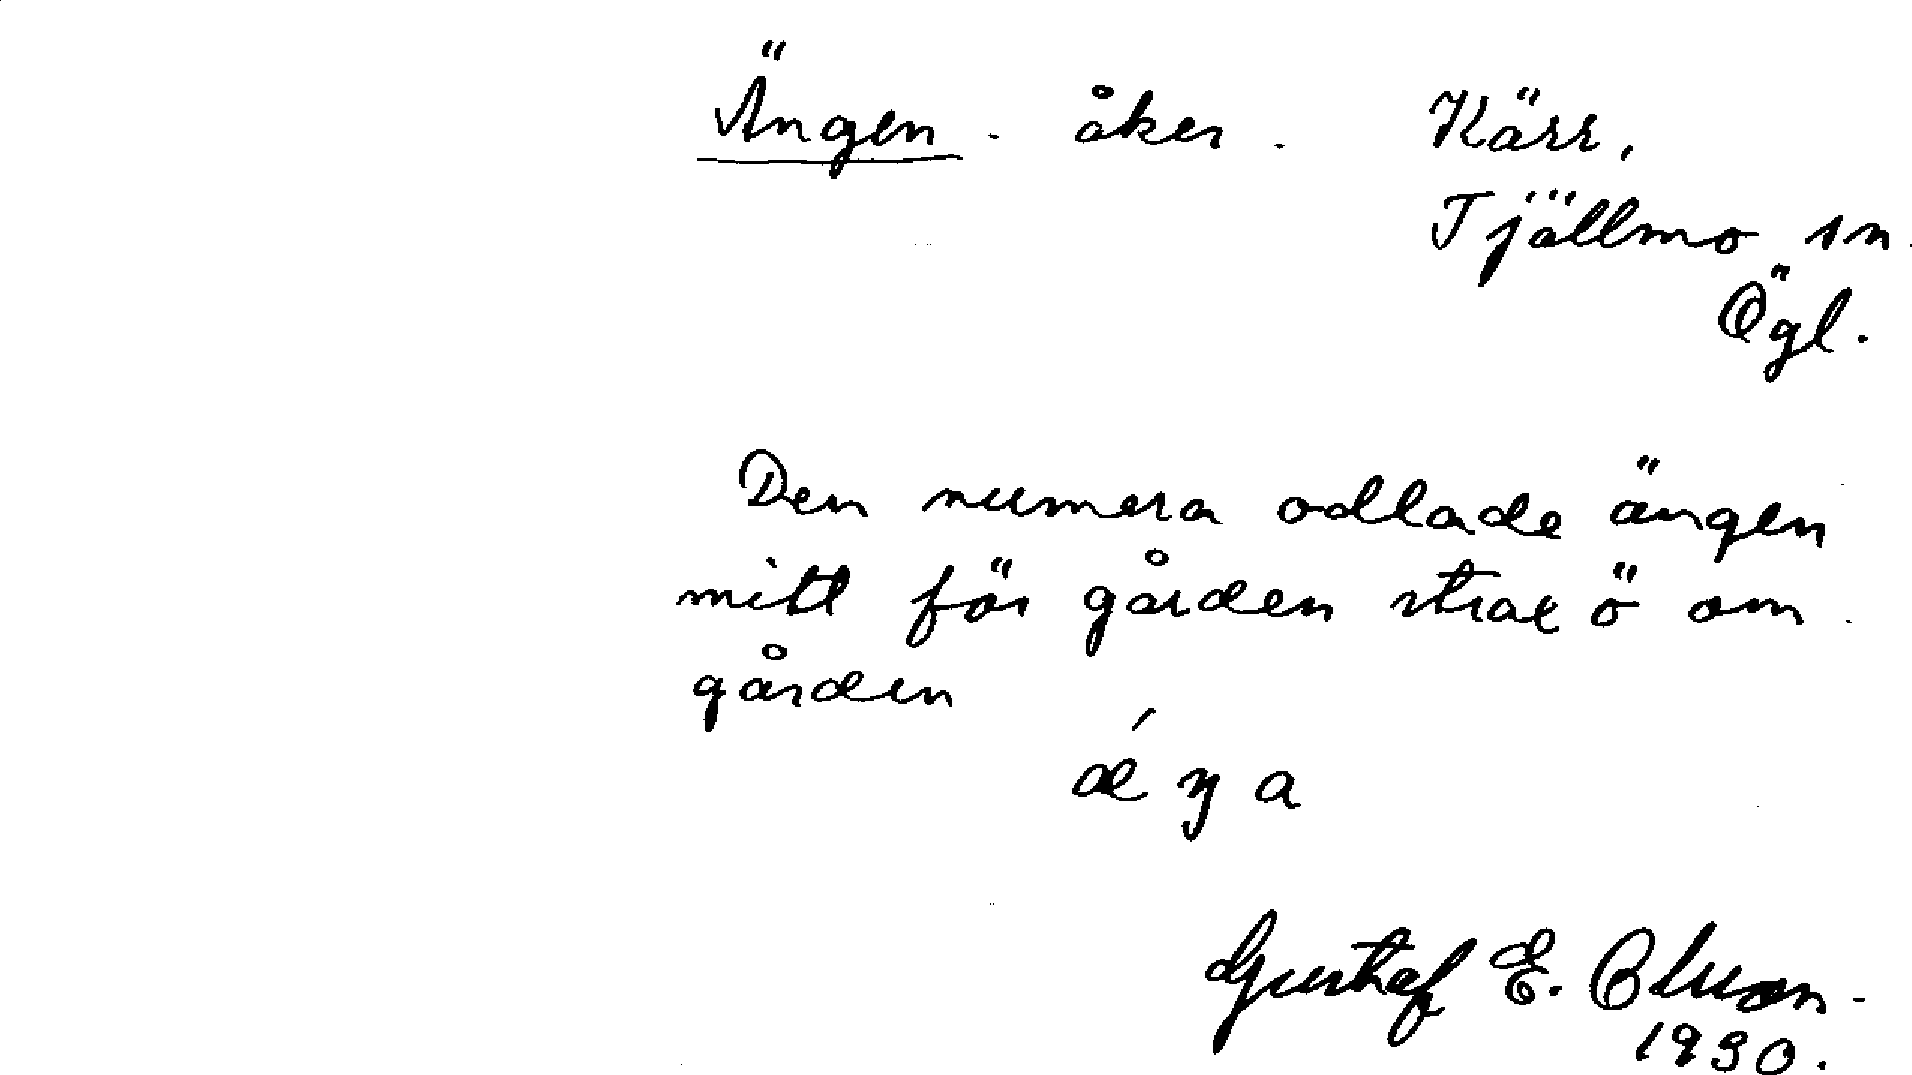 Ängen. åker. Kärr,
Tjällmo sn.
Ögl.
Den numera odlade ängen
mitt för gården strax ö om
gården
ǽŋa
Gustaf E. Olsson.
1930.